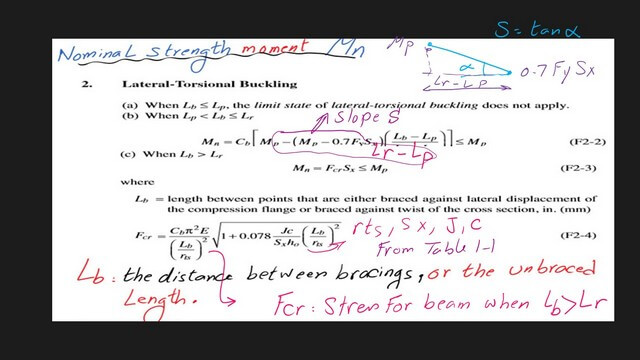 S = tanα
Nominal strength moment Mn
Mp
α
0.7 Fy Sx
Lr - Lp
2. Lateral-Torsional Buckling
(a) When Lb ≤ Lp, the limit state of lateral-torsional buckling does not apply.
(b) When Lp < Lb ≤ Lr
slope S
Mn = Cb[Mp − (Mp − 0.7FySx)(Lb − Lp / Lr − Lp)] ≤ Mp (F2-2)
(c) When Lb > Lr
Mn = FcrSx ≤ Mp (F2-3)
where
Lb = length between points that are either braced against lateral displacement of
the compression flange or braced against twist of the cross section, in. (mm)
Fcr = Cbπ²E / (Lb/rts)² √(1 + 0.078 Jc/Sxho (Lb/rts)²) (F2-4)
rts, Sx, J, C
From Table 1-1
Lb: the distance between bracings, or the unbraced
Length.
Fcr: Stres For beam when Lb > Lr